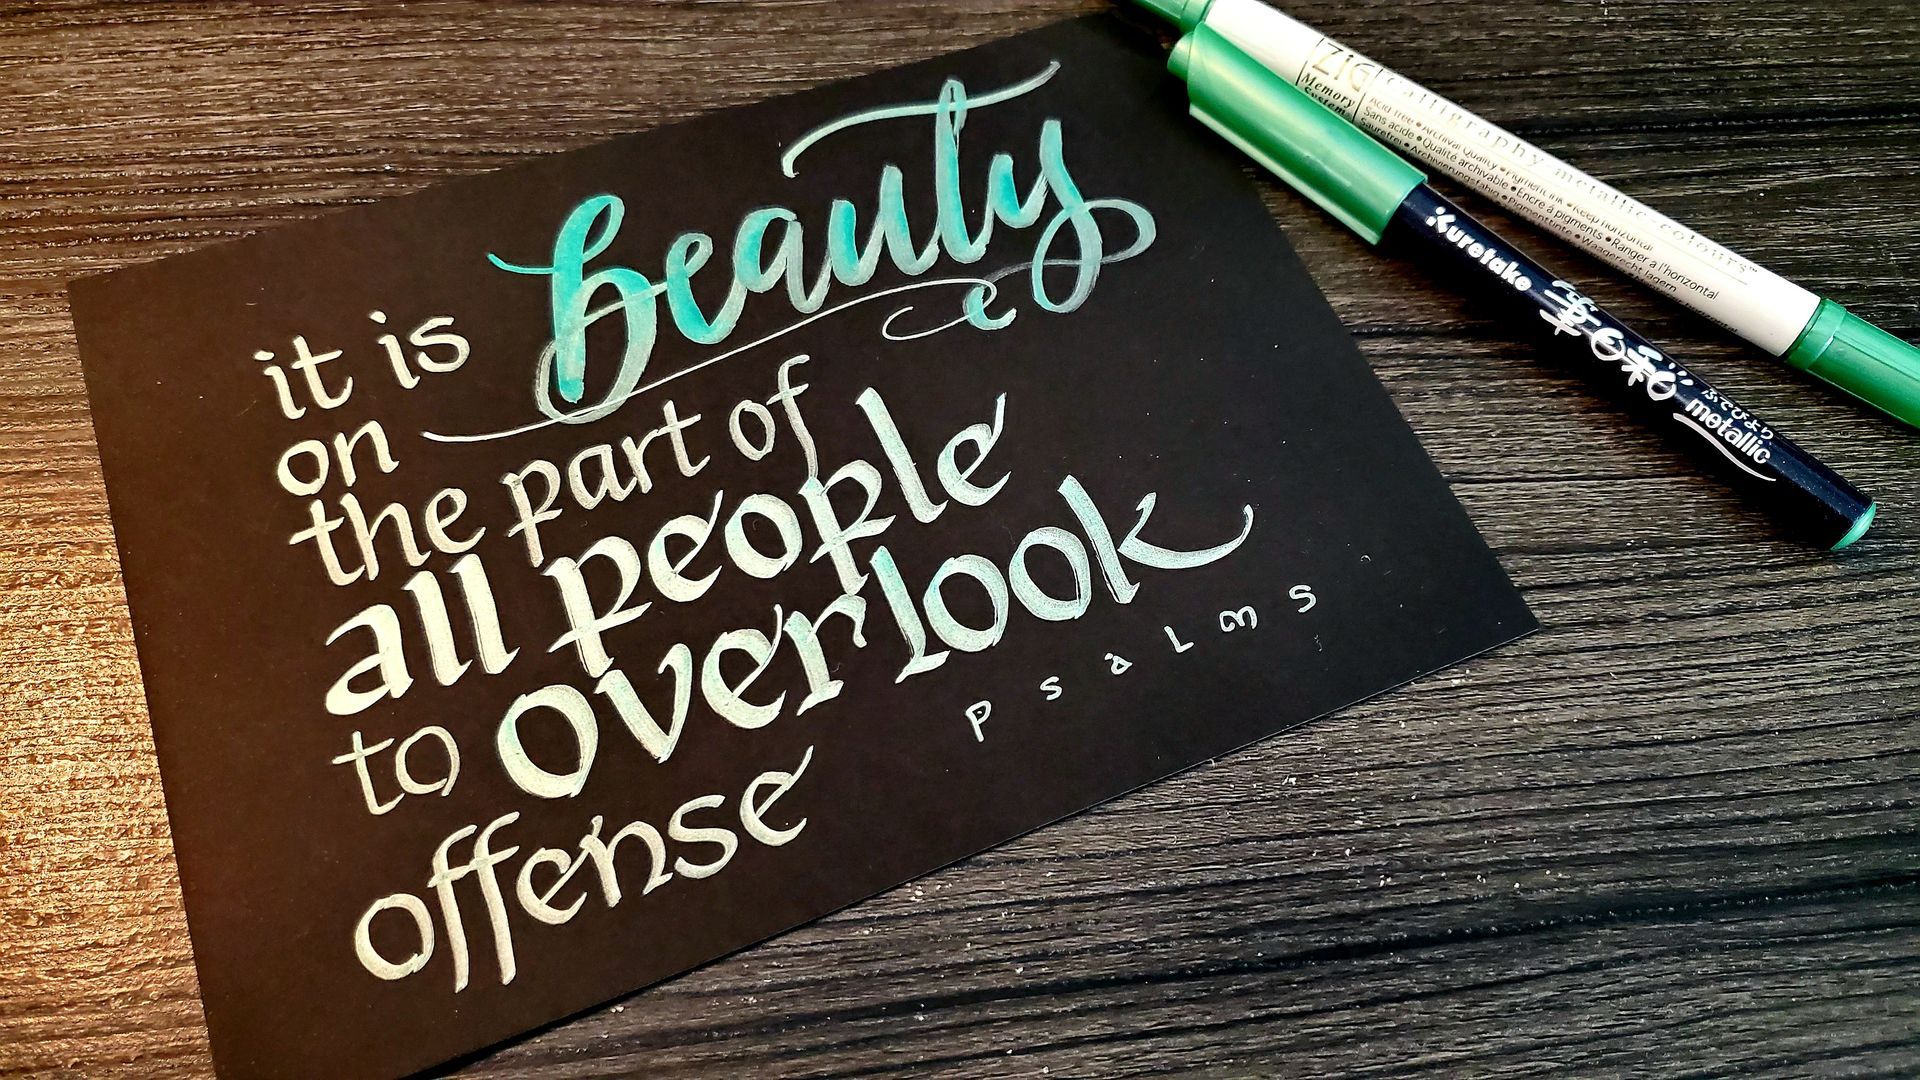 it is beauty
on
the part of
all people
to overlook
offense
psalms
ZIG Calligraphy metallic colours™
Memory System
Acid free • Archival Quality • Pigment ink • Keep horizontal
Sans acide • Qualité archivable • Encre à pigments • Ranger à l'horizontal
Säurefrei • Archivierungsfähig • Pigmenttinte • Waagerecht lagern
Kuretake
筆日和
ふでびより
metallic